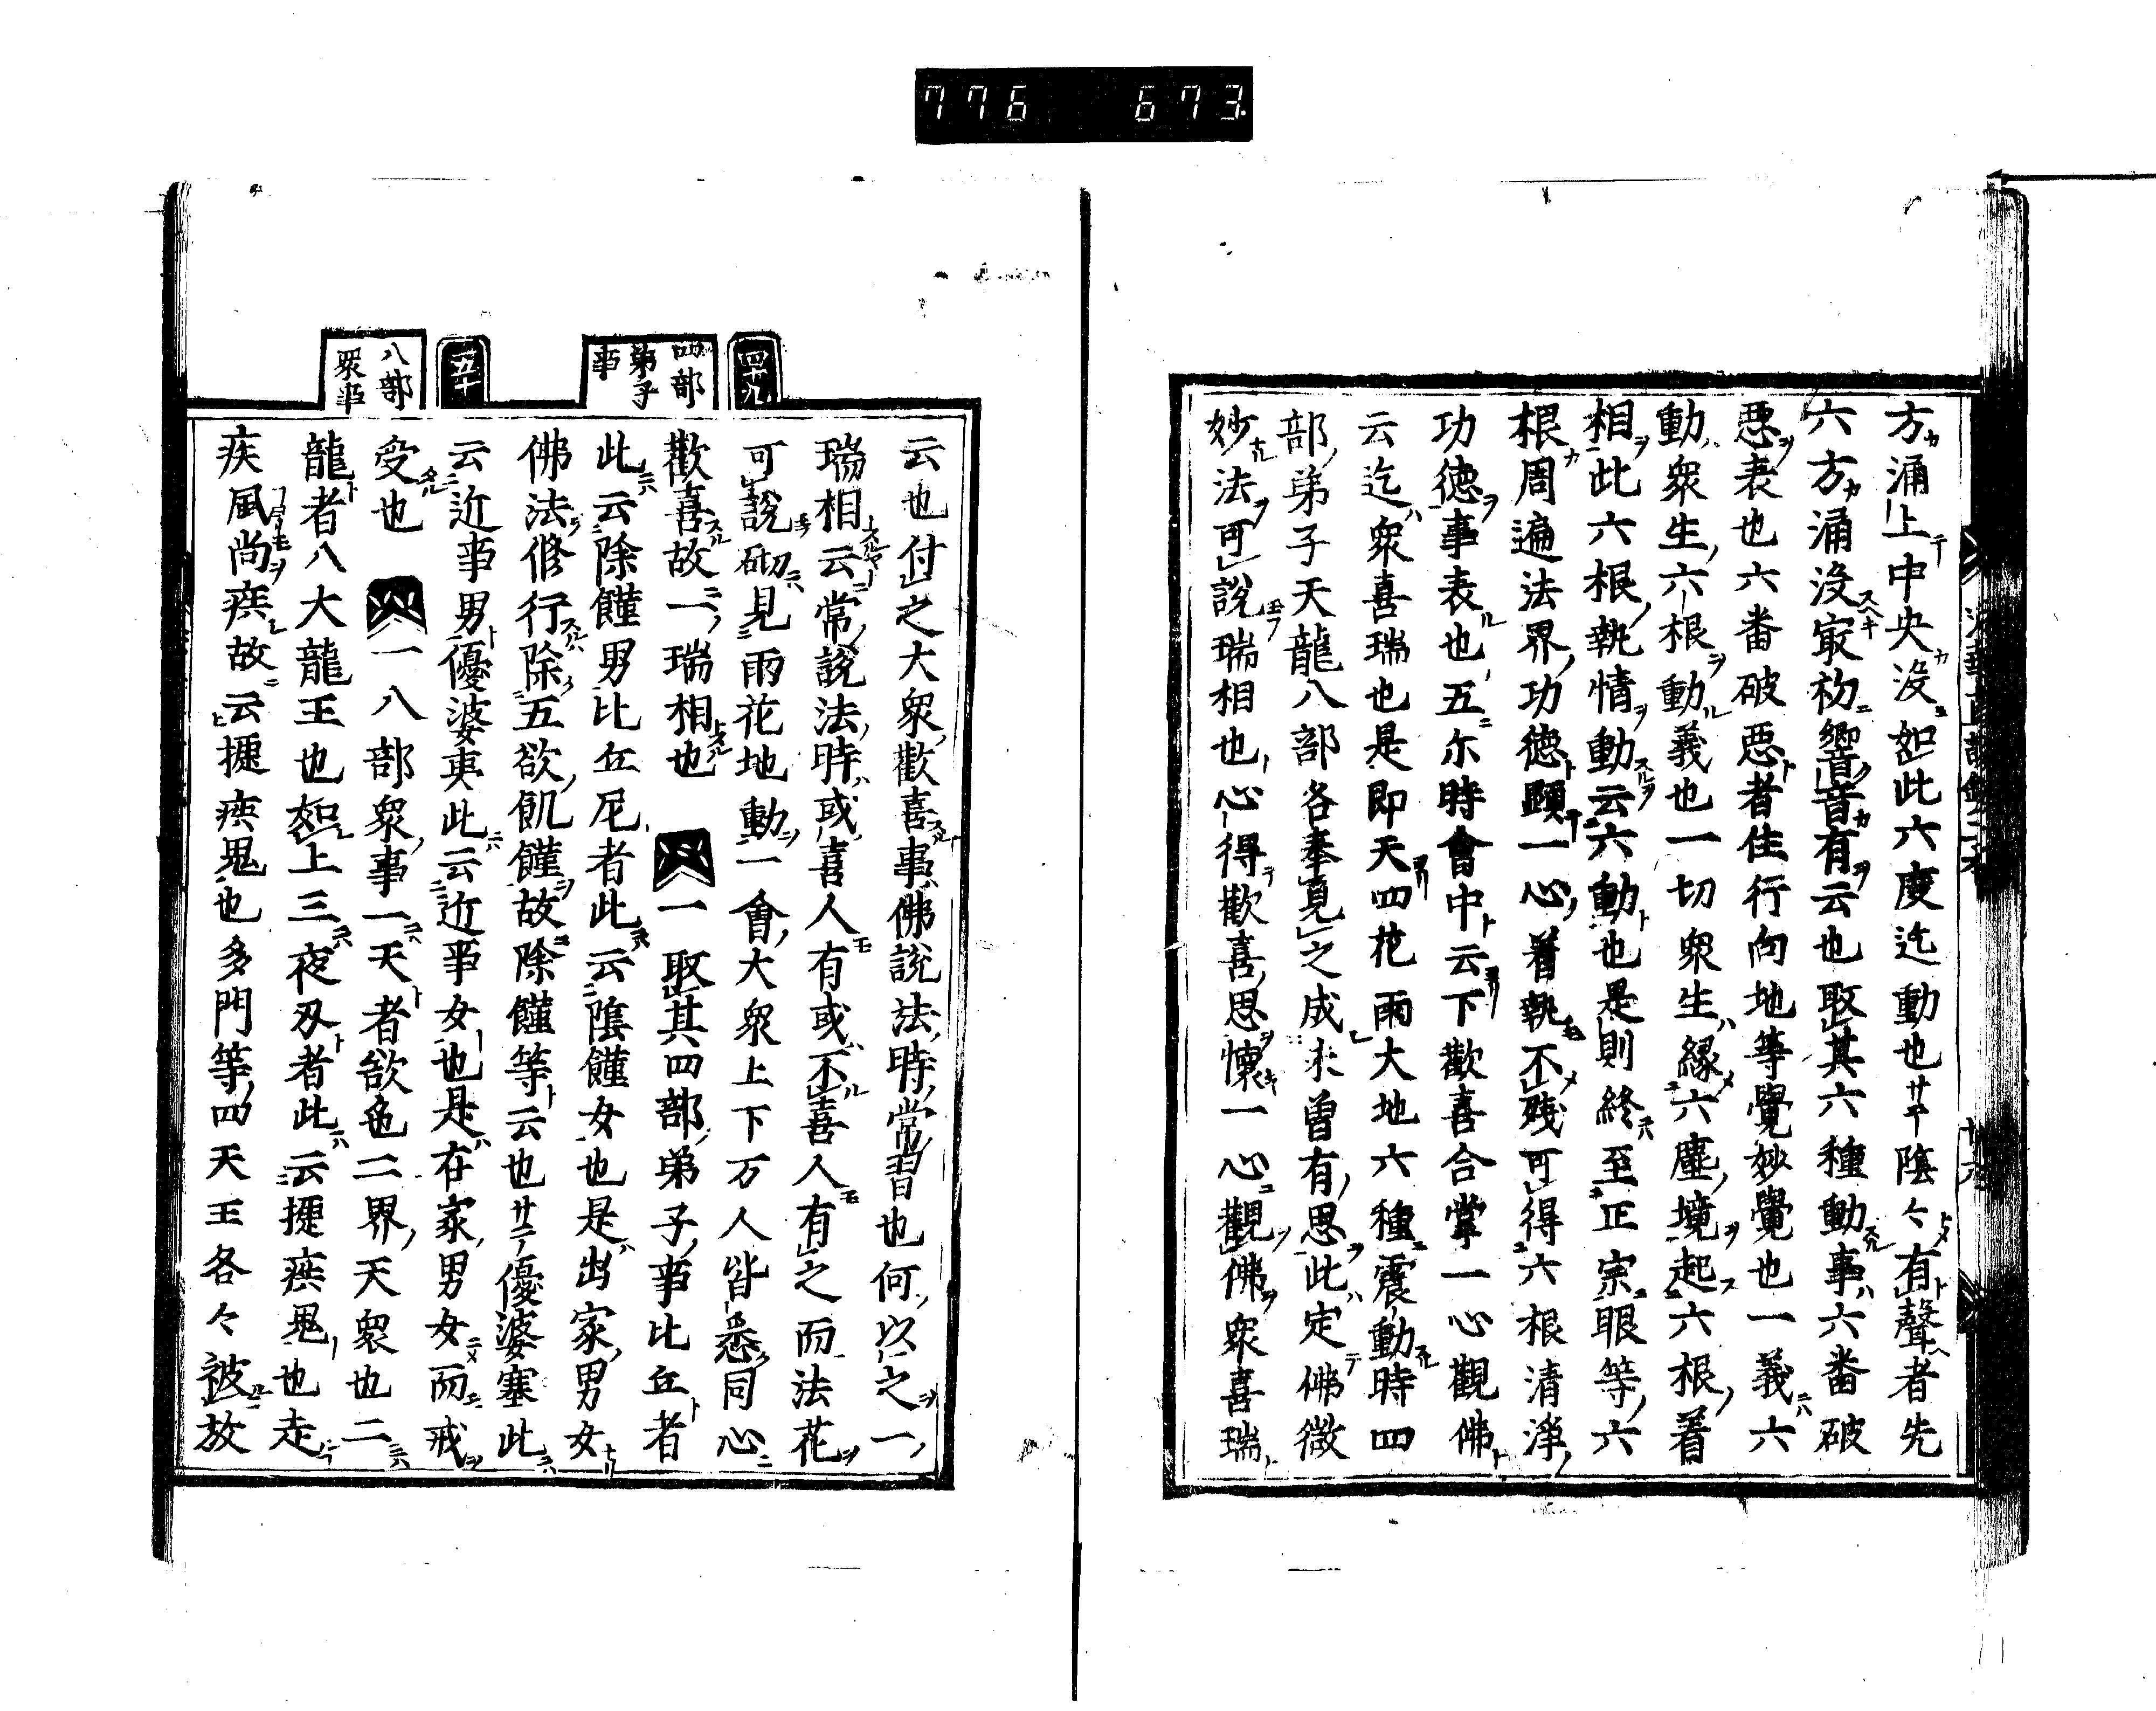 776 673
方涌上中央没如此六度迄動也サテ陰々有聲者先
六方涌没最初響音有云也取其六種動事六番破
悪表也六番破悪者住行向地等覺妙覺也一義六
動衆生六根動義也一切衆生縁六塵境起六根着
相此六根執情動云六動也是則終至正宗眼等六
根周遍法界功徳顕一心着執不残可得六根清淨
功徳事表也五尓時會中云下歡喜合掌一心觀佛
云迄衆喜瑞也是即天四花雨大地六種震動時四
部弟子天龍八部各奉見之成未曽有思此定佛微
妙法可説瑞相也心得歡喜思懐一心觀佛衆喜瑞
四十九
四部弟子事
五十
八部衆事
云也付之大衆歡喜事佛説法時常習也何以之一
瑞相云常説法時或喜人有或不喜人有之而法花
可説砌見雨花地動一會大衆上下万人皆悉同心
歡喜故一瑞相也 一取其四部弟子事比丘者
此云除饉男比丘尼者此云除饉女也是出家男女
佛法修行除五欲飢饉故除饉等云也サテ優婆塞此
云近事男優婆夷此云近事女也是在家男女而戒
受也 一八部衆事一天者欲色二界天衆也二
龍者八大龍王也如上三夜叉者此云捷疾鬼也走
疾風尚疾故云捷疾鬼也多門等四天王各々被放